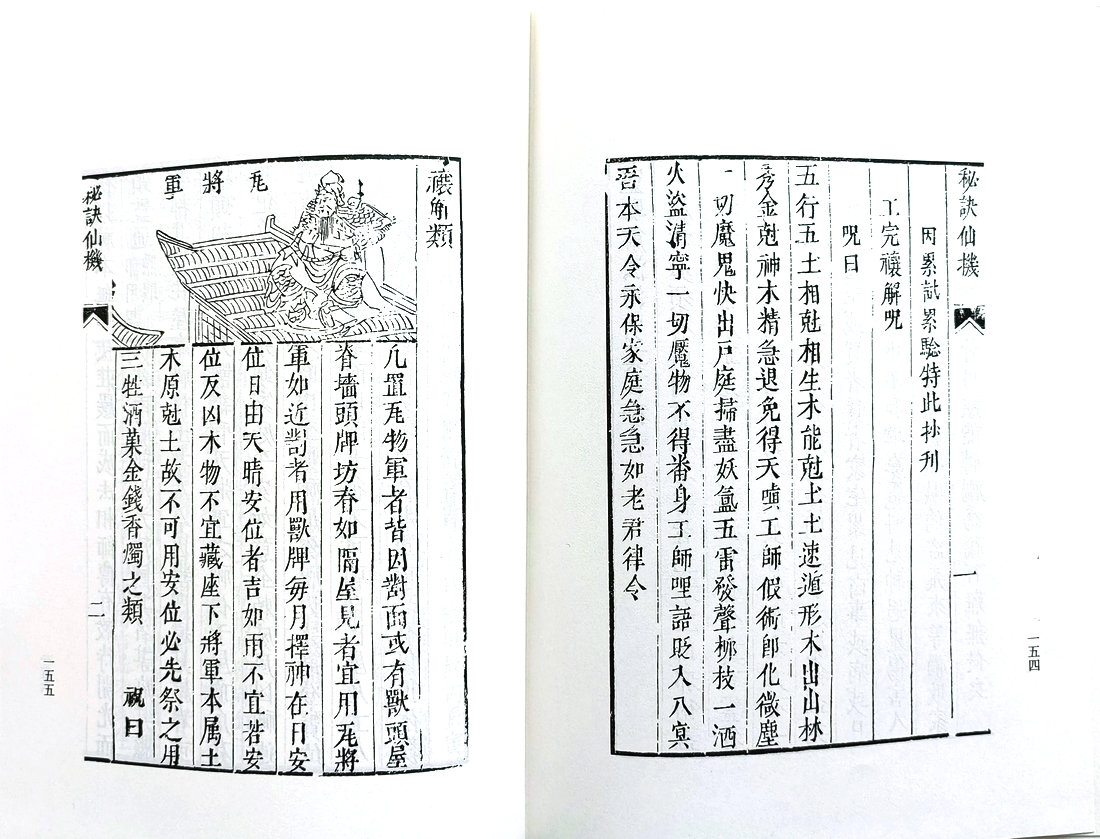 秘訣仙機
一
因累試累驗特此抄刊
工完禳解呪
呪曰
五行五土相尅相生木能尅土土速遁形木出山林
金尅神木精急退免得天嗔工師假術即化微塵
一切魔鬼快出戶庭掃盡妖氛五雷發聲柳枝一洒
火盜清寧一切魔物不得番身工師哩語貶入八冥
本天令永保家庭急急如老君律令
一五四
禳解類
瓦將軍
凡置瓦物軍者皆因對面或有獸頭屋
脊墻頭牌坊脊如隔屋見者宜用瓦將
軍如近對者用獸牌每月擇神在日安
位日由天晴安位者吉如雨不宜若安
位反凶木物不宜藏座下將軍本属土
木原尅土故不可用安位必先祭之用
三牲酒菓金錢香燭之類 祝曰
秘訣仙機
二
一五五